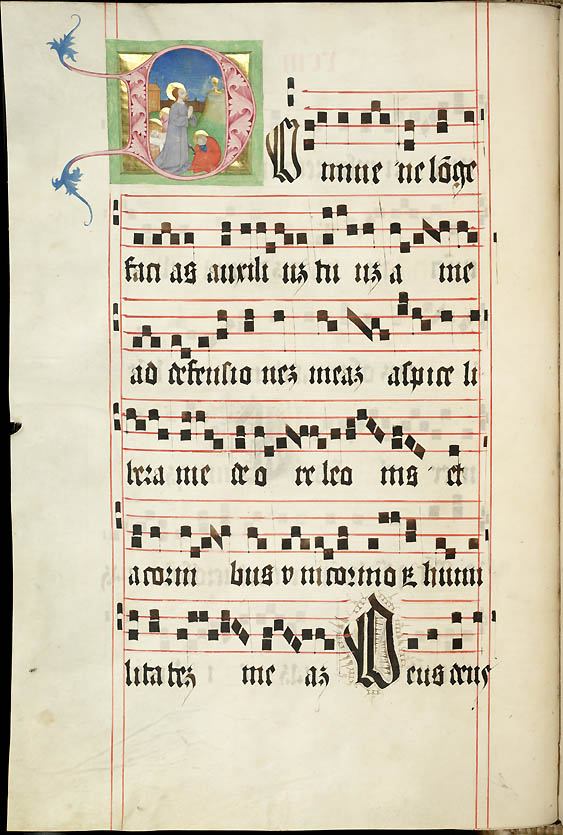 Domine ne lōge
faci as auxili uꝫ tu uꝫ a me
ad defensio neꝫ meaꝫ aspice li
bera me de o re leo nis et
a corni bus vnicornio ꝝ humi
litateꝫ me aꝫ Deus deus